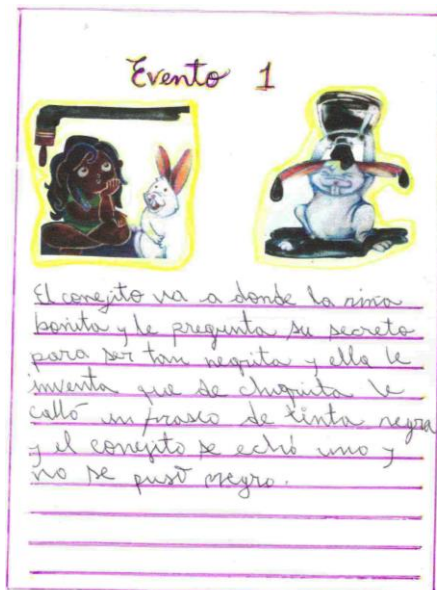 Evento 1
El conejito va a donde la nina
bonita y le pregunta su secreto
para ser tan negrita y ella le
inventa que de chiquita le
calló un frasco de tinta negra
y el conejito se echó uno y
no se pusó negro.